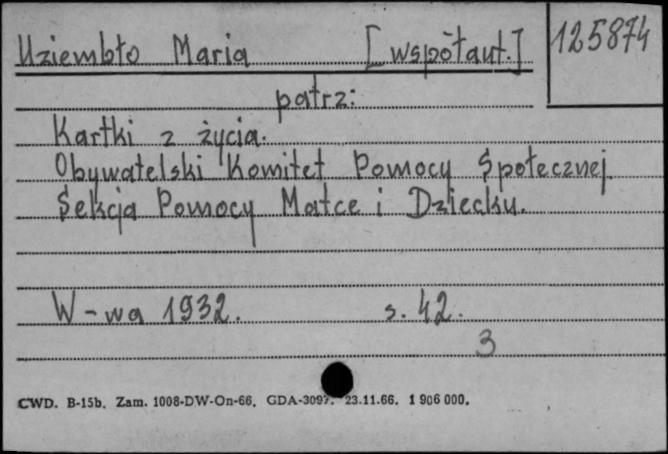 Uziembło Maria [współaut.] 125874
patrz:
Kartki z życia.
Obywatelski Komitet Pomocy Społecznej
Sekcja Pomocy Matce i Dziecku.
W-wa 1932. s. 42.
3
CWD. B-15b. Zam. 1008-DW-On-66. GDA-3097. 23.11.66. 1 906 000.